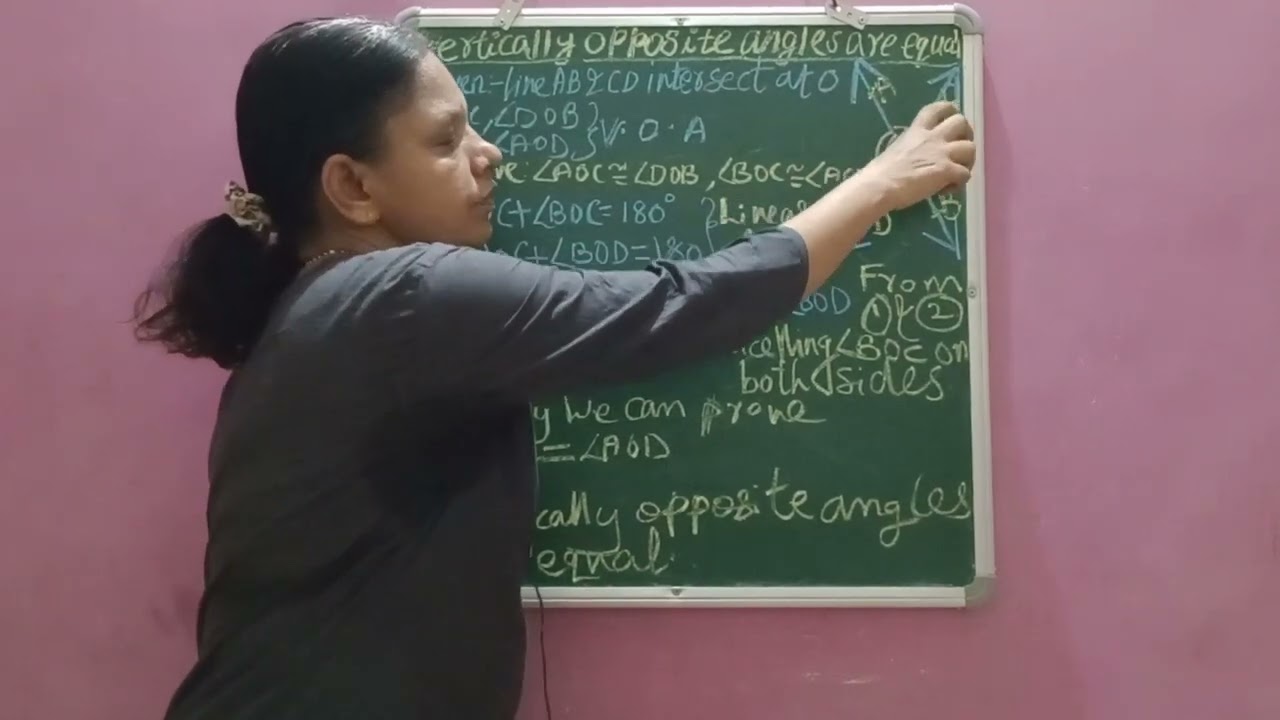 vertically opposite angles are equal
en:- line AB & CD intersect at O
C, ∠DOB }
∠AOD, } V. O. A
A
ve: ∠AOC ≅ ∠DOB, ∠BOC ≅ ∠AO
C + ∠BOC = 180° } Linear
B
D
OC + ∠BOD = 180
From
∠BOD
① & ②
celling ∠BOC on
both sides
y we can prove
= ∠AOD
cally opposite angles
equal.